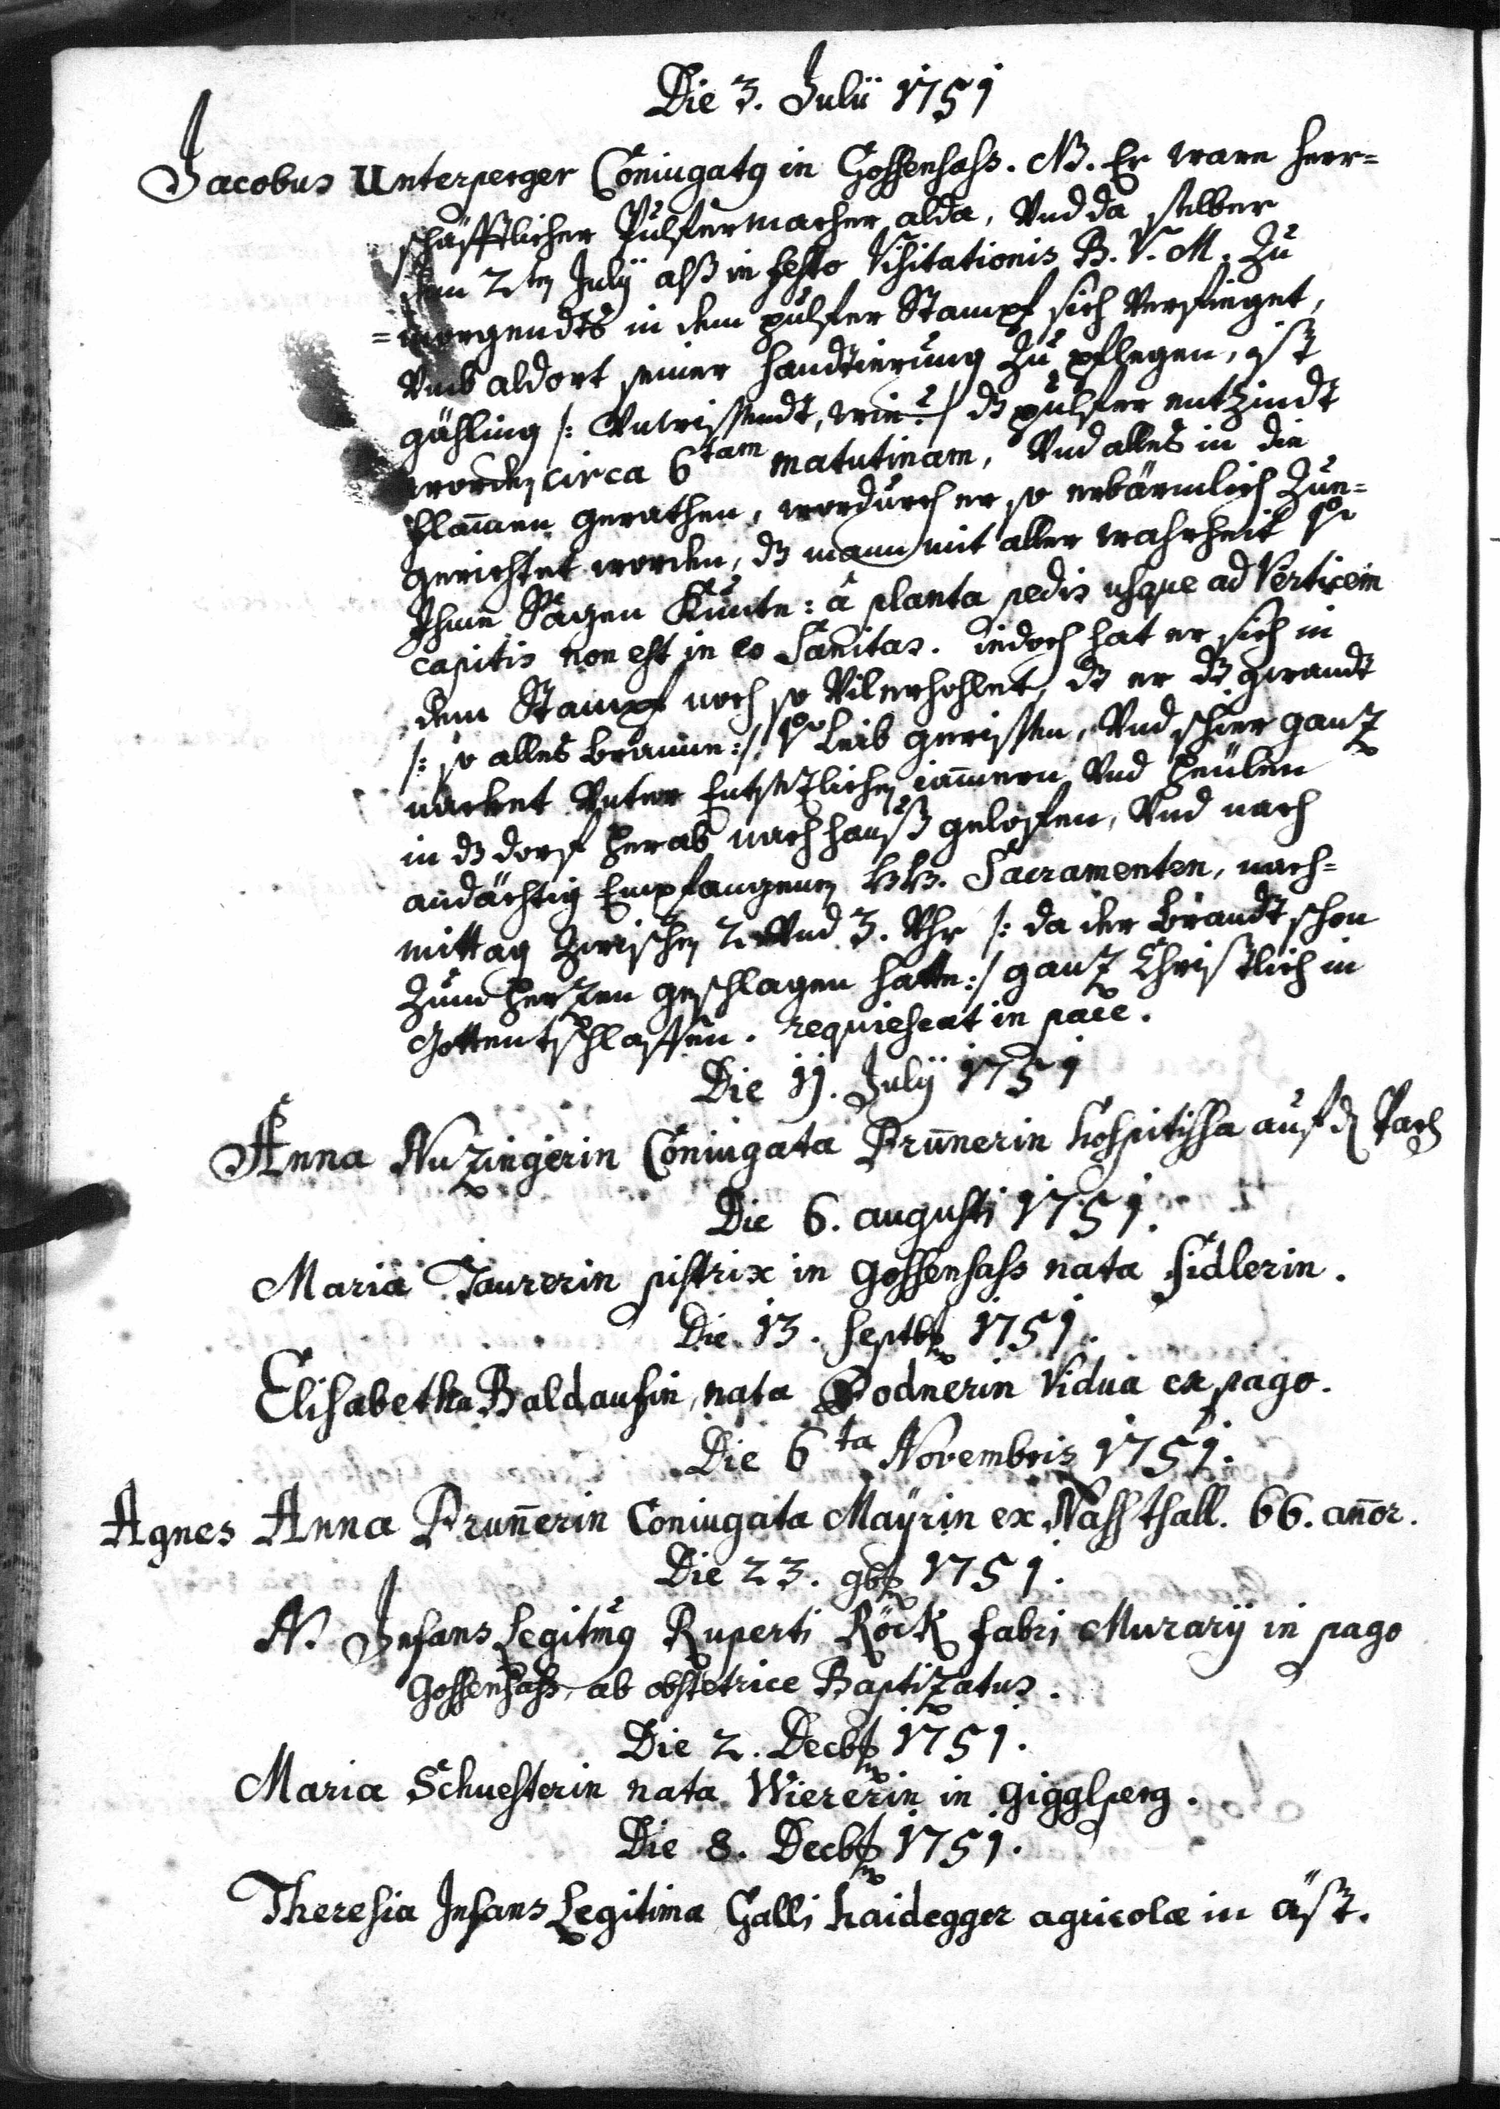 Die 3. Julii 1751
Jacobus Unterperger Coniugatq in Gossensass. NB. Er ware herr=
schäfftlicher Pulfermacher alda, Vnd da selber
den 2ten July alß in festo Visitationis B. V. M. zu
=morgendts in dem pulfer Stampf sich Verfieget,
Vmb aldort seiner handtierung zu pflegen, ist
gähling /: Vnwissendt, wie? :/ dz pulfer entzindt
worden circa 6tam matutinam, Vnd alles in die
flam̄en gerathen, wordurch er so erbärmlich zue=
gerichtet worden, dz mann mit aller wahrheit Vo
Jhme Sagen Kunte: à planta pedis usque ad Verticem
capitis non est in eo Sanitas. iedoch hat er sich in
dem Stampf noch so Vil erhohlet, dz er dz gwandt
/: so alles brunne :/ Vo Leib gerissen, Vnd schier ganz
nacket Vnter Entsetzlichen iam̄ern Vnd heülen
in dz dorf herab nach hauß geloffen, Vnd nach
andächtig Empfangenen hh. Sacramenten, nach=
mittag zwischen 2. Vnd 3. Vhr /: da der brandt schon
zum herzen geschlagen hatte :/ ganz Christlich in
Gott entschlaffen. requiescat in pace.
Die 11. July 1751
Anna Nuzingerin Coniugata Brun̄erin hospitissa auf
Die 6. augusti 1751.
Maria Taurerin pistrix in gossensass nata fidlerin.
Die 13. Septbr 1751.
Elisabetha Baldaufin, nata Bodnerin Vidua ex pago.
Die 6ta Novembris 1751.
Agnes Anna Brun̄erin Coniugata Maÿrin ex Nassthall. 66. an̄or.
Die 23. 9br 1751.
N. Infans Legitimq Ruperti Röck fabri Murarÿ in pago
gossensass, ab obstetrice Baptizatus.
Die 2. Decbr 1751.
Maria Schuesterin nata Wiererin in gigglperg.
Die 8. Decbr 1751.
Theresia Infans Legitima Galli haidegger agricolæ in äst.